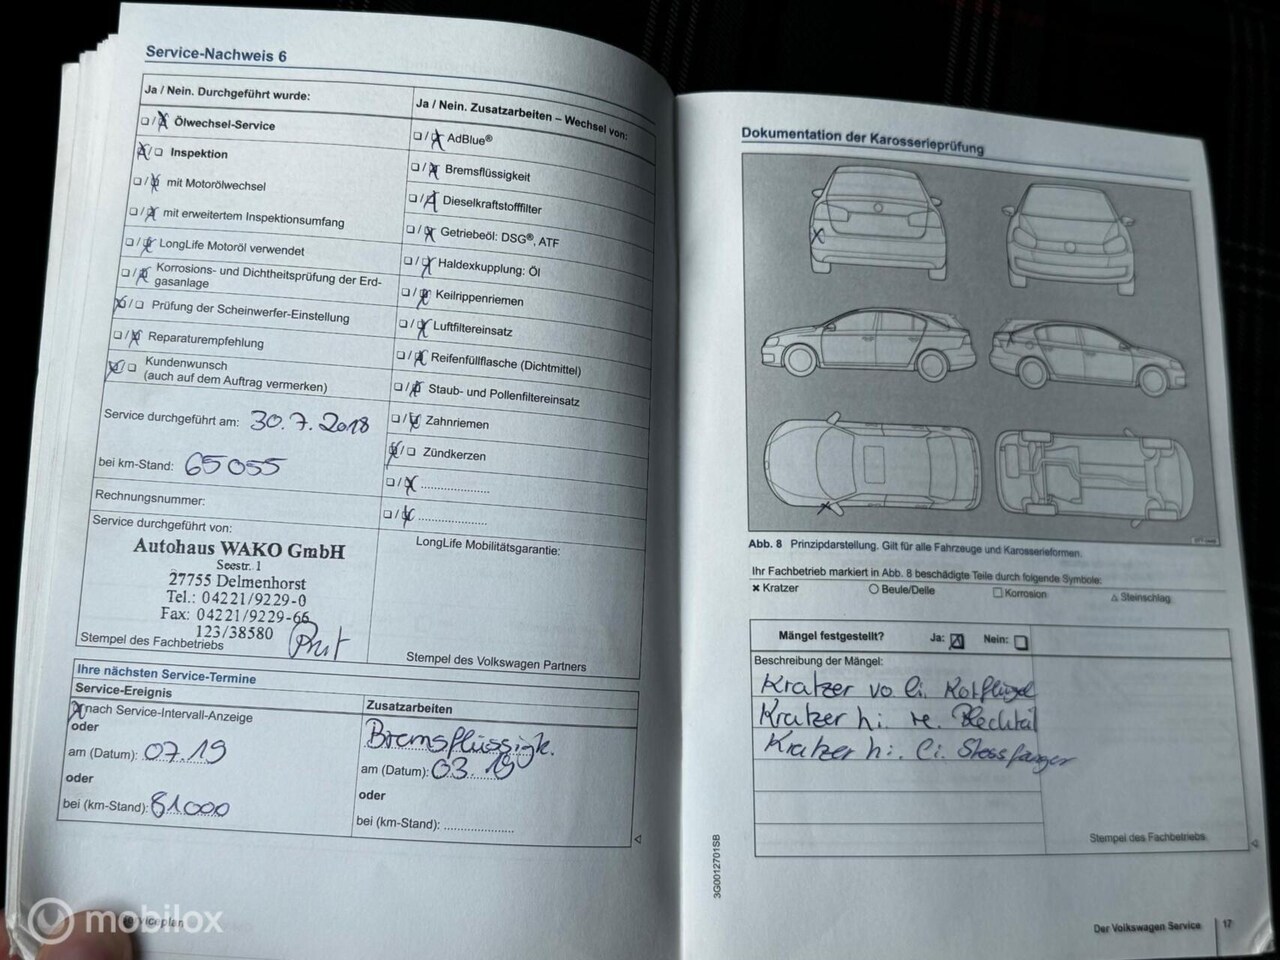 Service-Nachweis 6
Ja / Nein. Durchgeführt wurde:
Ölwechsel-Service
Inspektion
mit Motorölwechsel
mit erweitertem Inspektionsumfang
LongLife Motoröl verwendet
Korrosions- und Dichtheitsprüfung der Erd-
gasanlage
Prüfung der Scheinwerfer-Einstellung
Reparaturempfehlung
Kundenwunsch
(auch auf dem Auftrag vermerken)
Service durchgeführt am: 30.7.2018
bei km-Stand: 65055
Rechnungsnummer:
Service durchgeführt von:
Autohaus WAKO GmbH
Seestr. 1
27755 Delmenhorst
Tel.: 04221/9229-0
Fax: 04221/9229-66
123/38580
Stempel des Fachbetriebs
Ja / Nein. Zusatzarbeiten – Wechsel von:
AdBlue®
Bremsflüssigkeit
Dieselkraftstofffilter
Getriebeöl: DSG®, ATF
Haldexkupplung: Öl
Keilrippenriemen
Luftfiltereinsatz
Reifenfüllflasche (Dichtmittel)
Staub- und Pollenfiltereinsatz
Zahnriemen
Zündkerzen
LongLife Mobilitätsgarantie:
Stempel des Volkswagen Partners
Ihre nächsten Service-Termine
Service-Ereignis
nach Service-Intervall-Anzeige
oder
am (Datum): 07.19
oder
bei (km-Stand): 81000
Zusatzarbeiten
Bremsflüssigk.
am (Datum): 03.19
oder
bei (km-Stand):
mobilox
Dokumentation der Karosserieprüfung
Abb. 8 Prinzipdarstellung. Gilt für alle Fahrzeuge und Karosserieformen.
Ihr Fachbetrieb markiert in Abb. 8 beschädigte Teile durch folgende Symbole:
× Kratzer ○ Beule/Delle □ Korrosion △ Steinschlag
Mängel festgestellt? Ja: Nein:
Beschreibung der Mängel:
Kratzer vo li. Kotflügel
Kratzer hi. re. Blechteil
Kratzer hi. li. Stossfänger
Stempel des Fachbetriebs
3G0012701SB
Der Volkswagen Service 17